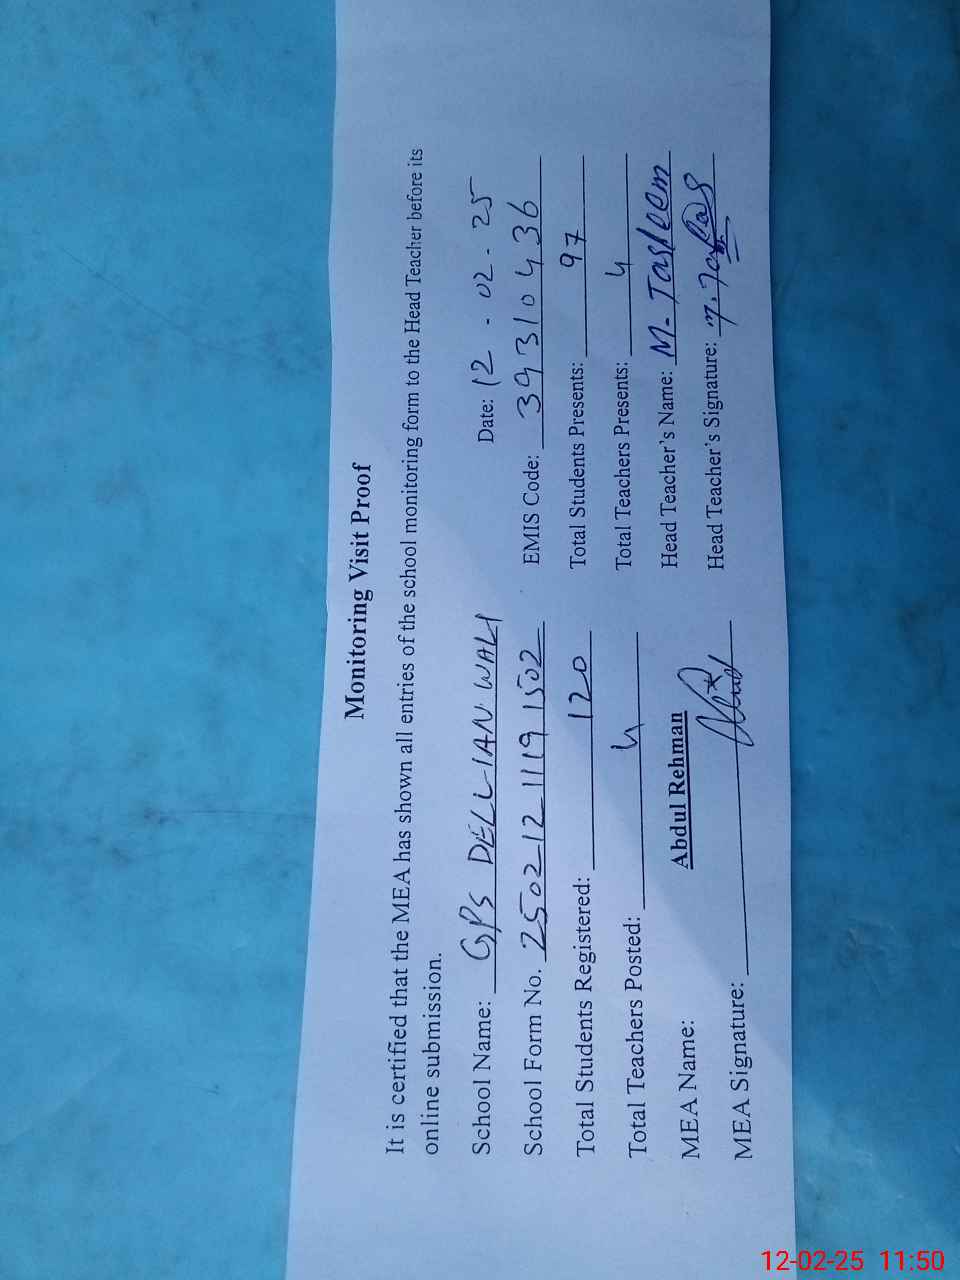 Monitoring Visit Proof
It is certified that the MEA has shown all entries of the school monitoring form to the Head Teacher before its
online submission.
School Name: GPS DELLIAN WALI Date: 12 - 02 - 25
School Form No. 2502121119 1502 EMIS Code: 39310436
Total Students Registered: 120 Total Students Presents: 97
Total Teachers Posted: 4 Total Teachers Presents: 4
MEA Name: Abdul Rehman Head Teacher's Name: M. Tasleem
MEA Signature: Head Teacher's Signature:
12-02-25 11:50